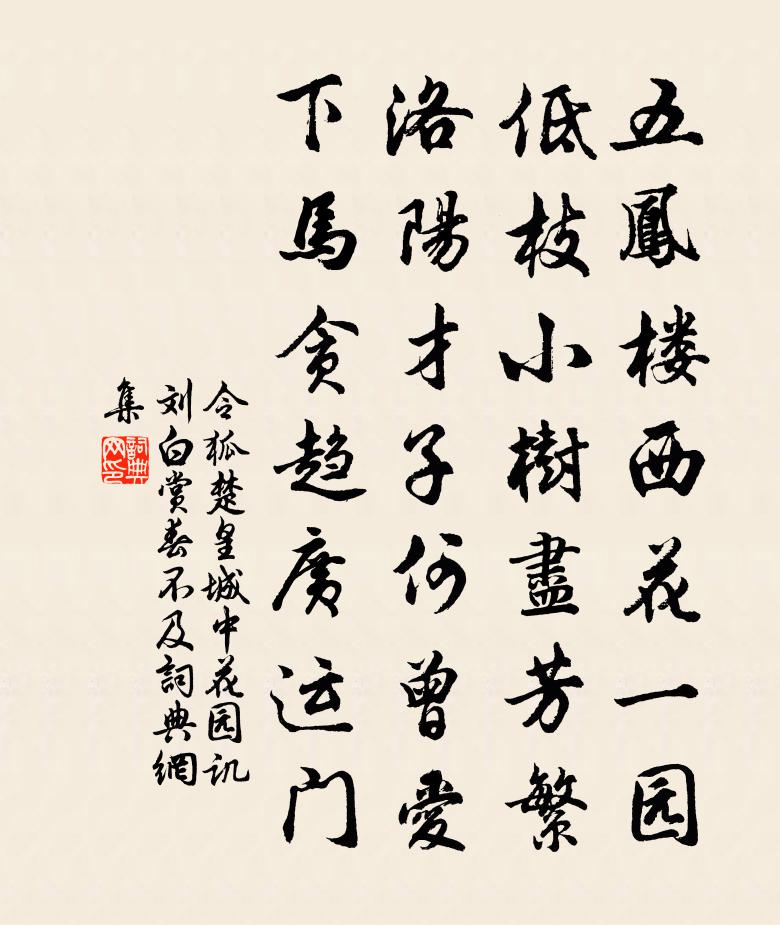 五鳳楼西花一园
低枝小樹盡芳繁
洛陽才子何曾愛
下馬贪趋廣运门
令狐楚皇城中花园讥
刘白赏春不及詞典網
集
詞典网印